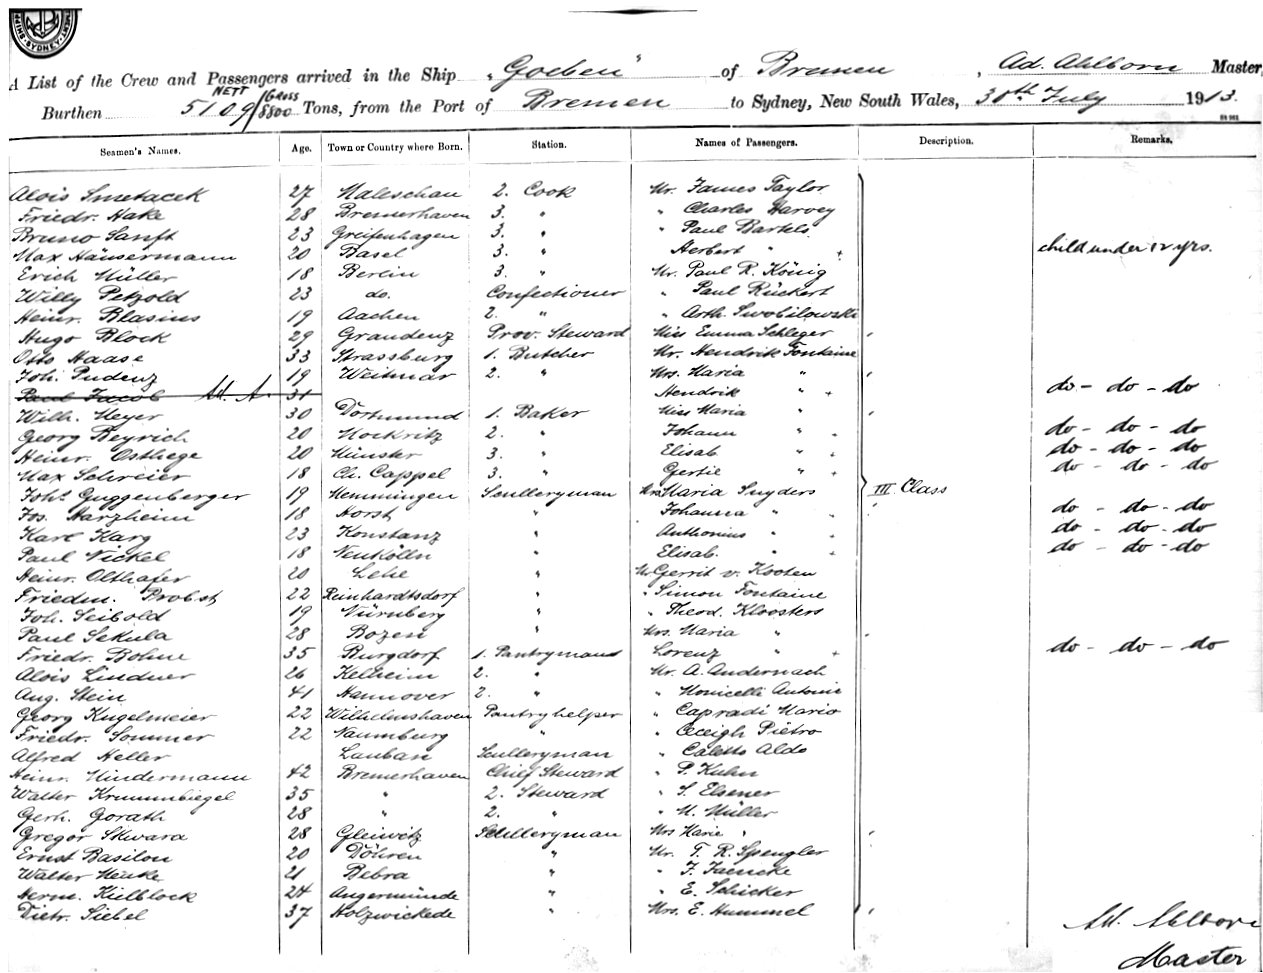 SYDNEY
A List of the Crew and Passengers arrived in the Ship "Goeben" of Bremen, Ad. Ahlborn Master
Burthen 5109 NETT / 8800 GROSS Tons, from the Port of Bremen to Sydney, New South Wales, 30th July 1913.
Seamen's Names. Age. Town or Country where Born. Station. Names of Passengers. Description. Remarks.
Alois Smetacek 27 Maleschau 2. Cook Mr. James Taylor
Friedr. Hake 28 Bremerhaven 3. " " Charles Harvey
Bruno Sanft 23 Greifenhagen 3. " " Paul Bartels
Max Häusermann 20 Basel 3. " Herbert " + child under 12 yrs.
Erich Müller 18 Berlin 3. " Mr. Paul R. König
Willy Petzold 23 do. Confectioner " Paul Rückert
Heinr. Blasius 19 Aachen 2. " " Arth. Swobilowski
Hugo Block 29 Graudenz Prov. Steward Miss Emma Schleger
Otto Haase 33 Strassburg 1. Butcher Mr. Hendrik Fontaine
Joh. Pudenz 19 Weitmar 2. " Mrs. Maria "
Paul Jacob Ad. A. 31 Hendrik " + do - do - do
Wilh. Meyer 30 Dortmund 1. Baker Miss Maria "
Georg Beyrich 20 Mockritz 2. " Johann " + do - do - do
Heinr. Osthege 20 Münster 3. " Elisab " + do - do - do
Max Schreier 18 Ch. Cappel 3. " Gertie " + do - do - do
Johs Guggenberger 19 Hemmingen Sculleryman Mrs Maria Snyders III Class
Jos. Harzheim 18 Horst " Johanna " do - do - do
Karl Karg 23 Konstanz " Anthonius " + do - do - do
Paul Nickel 18 Neukölln " Elisab. " + do - do - do
Heinr. Olthafer 20 Lehe " Mr Gerrit v. Kooten
Friedm. Probst 22 Reinhardtsdorf " " Simon Fontaine
Joh. Seibold 19 Nürnberg " " Theod. Kloosters
Paul Sekula 28 Bozen " Mrs. Maria "
Friedr. Bohne 35 Burgdorf 1. Pantryman Lorenz " + do - do - do
Alois Lindner 26 Kelheim 2. " Mr. A. Andernach
Aug. Stein 41 Hannover 2. " " Monicelli Antonio
Georg Kugelmeier 22 Wilhelmshaven Pantryhelper " Capradi Mario
Friedr. Sommer 22 Naumburg " " Pietro
Alfred Heller Lauban Sculleryman " Caletto Aldo
Heinr. Mindermann 42 Bremerhaven Chief Steward " P. Kuhn
Walter Krummbiegel 35 " 2. Steward " S. Elsener
Gerh. Gorath 28 " 2. " " M. Müller
Gregor Skwara 28 Gleiwitz Sculleryman Mrs Marie "
Ernst Basilon 20 Döhren " Mr. T. R. Spengler
Walter Henke 21 Bebra " " F. Jaencke
Herm. Kielblock 24 Angermünde " " E. Schicker
Dietr. Siebel 37 Holzwickede " Mrs. E. Hummel
Ad. Ahlborn
Master